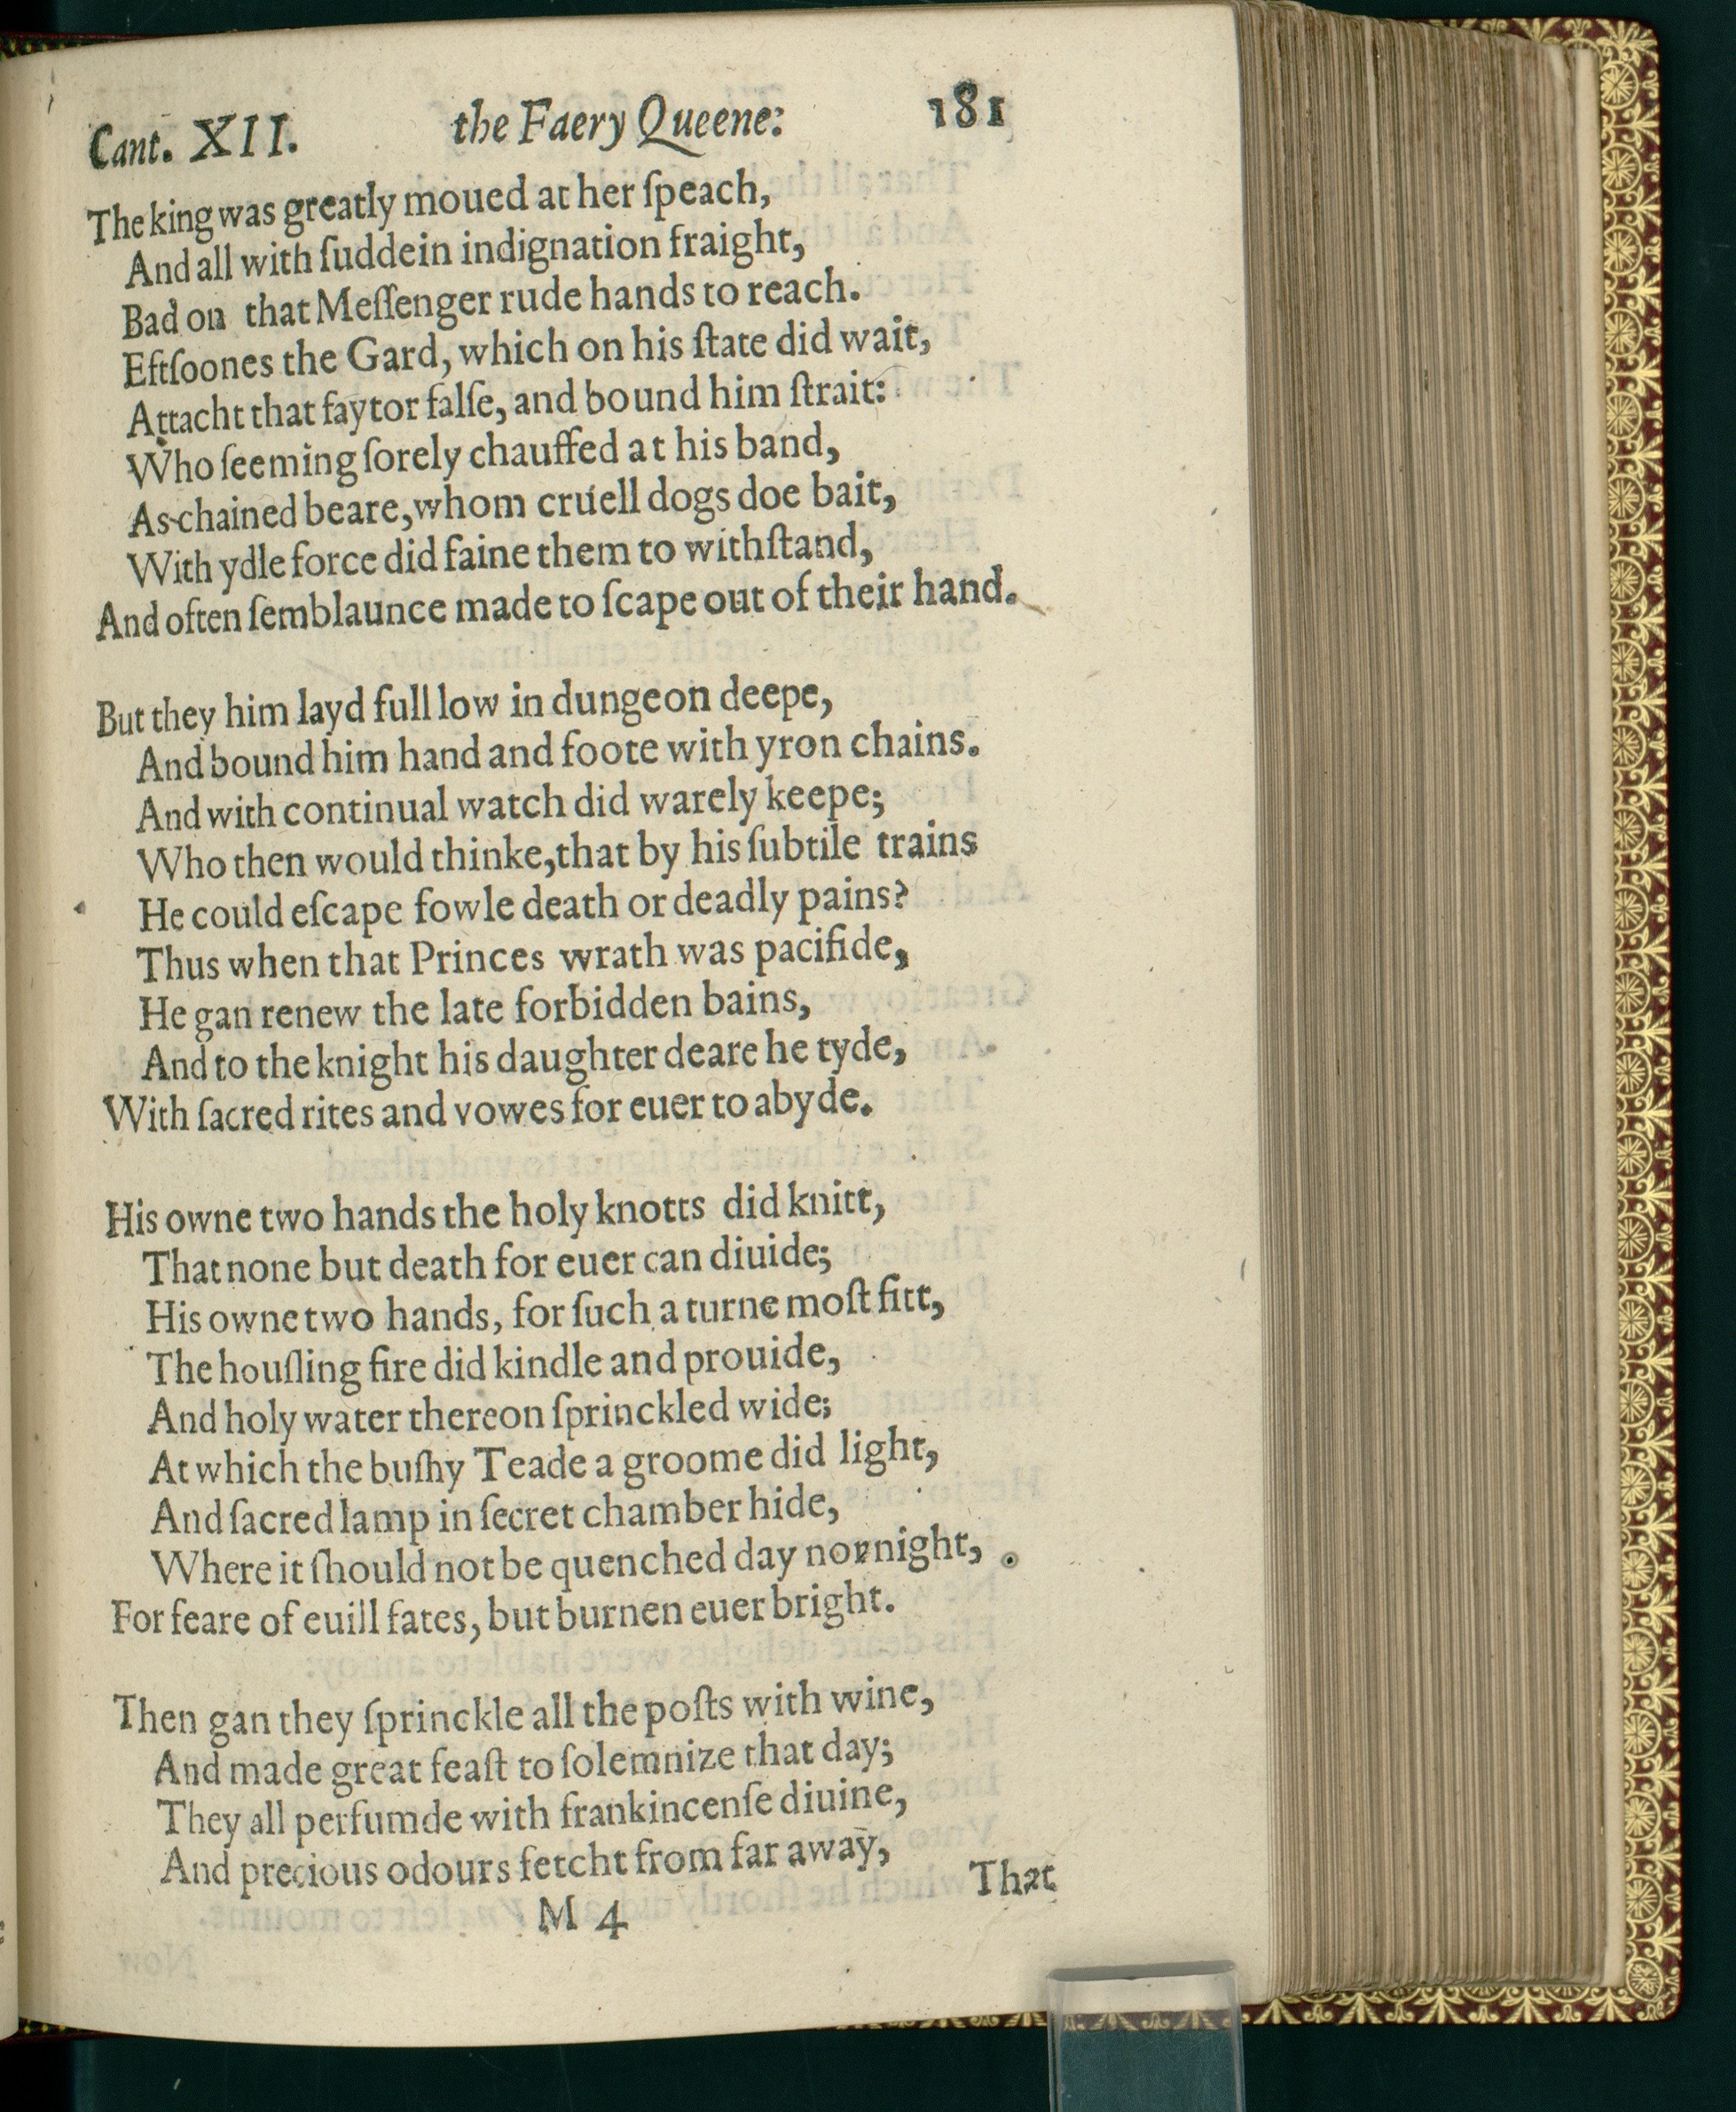 Cant. XII. the Faery Queene: 181
The king was greatly moued at her ſpeach,
And all with ſuddein indignation fraight,
Bad on that Meſſenger rude hands to reach.
Eftſoones the Gard, which on his ſtate did wait,
Attacht that faytor falſe, and bound him ſtrait:
Who ſeeming ſorely chauffed at his band,
As chained beare, whom cruell dogs doe bait,
With ydle force did faine them to withſtand,
And often ſemblaunce made to ſcape out of their hand.
But they him layd full low in dungeon deepe,
And bound him hand and foote with yron chains.
And with continual watch did warely keepe;
Who then would thinke, that by his ſubtile trains
He could eſcape fowle death or deadly pains?
Thus when that Princes wrath was pacifide,
He gan renew the late forbidden bains,
And to the knight his daughter deare he tyde,
With ſacred rites and vowes for euer to abyde.
His owne two hands the holy knotts did knitt,
That none but death for euer can diuide;
His owne two hands, for ſuch a turne moſt fitt,
The houſling fire did kindle and prouide,
And holy water thereon ſprinckled wide;
At which the buſhy Teade a groome did light,
And ſacred lamp in ſecret chamber hide,
Where it ſhould not be quenched day nor night,
For feare of euill fates, but burnen euer bright.
Then gan they ſprinckle all the poſts with wine,
And made great feaſt to ſolemnize that day;
They all perfumde with frankincenſe diuine,
And precious odours fetcht from far away,
That
M 4